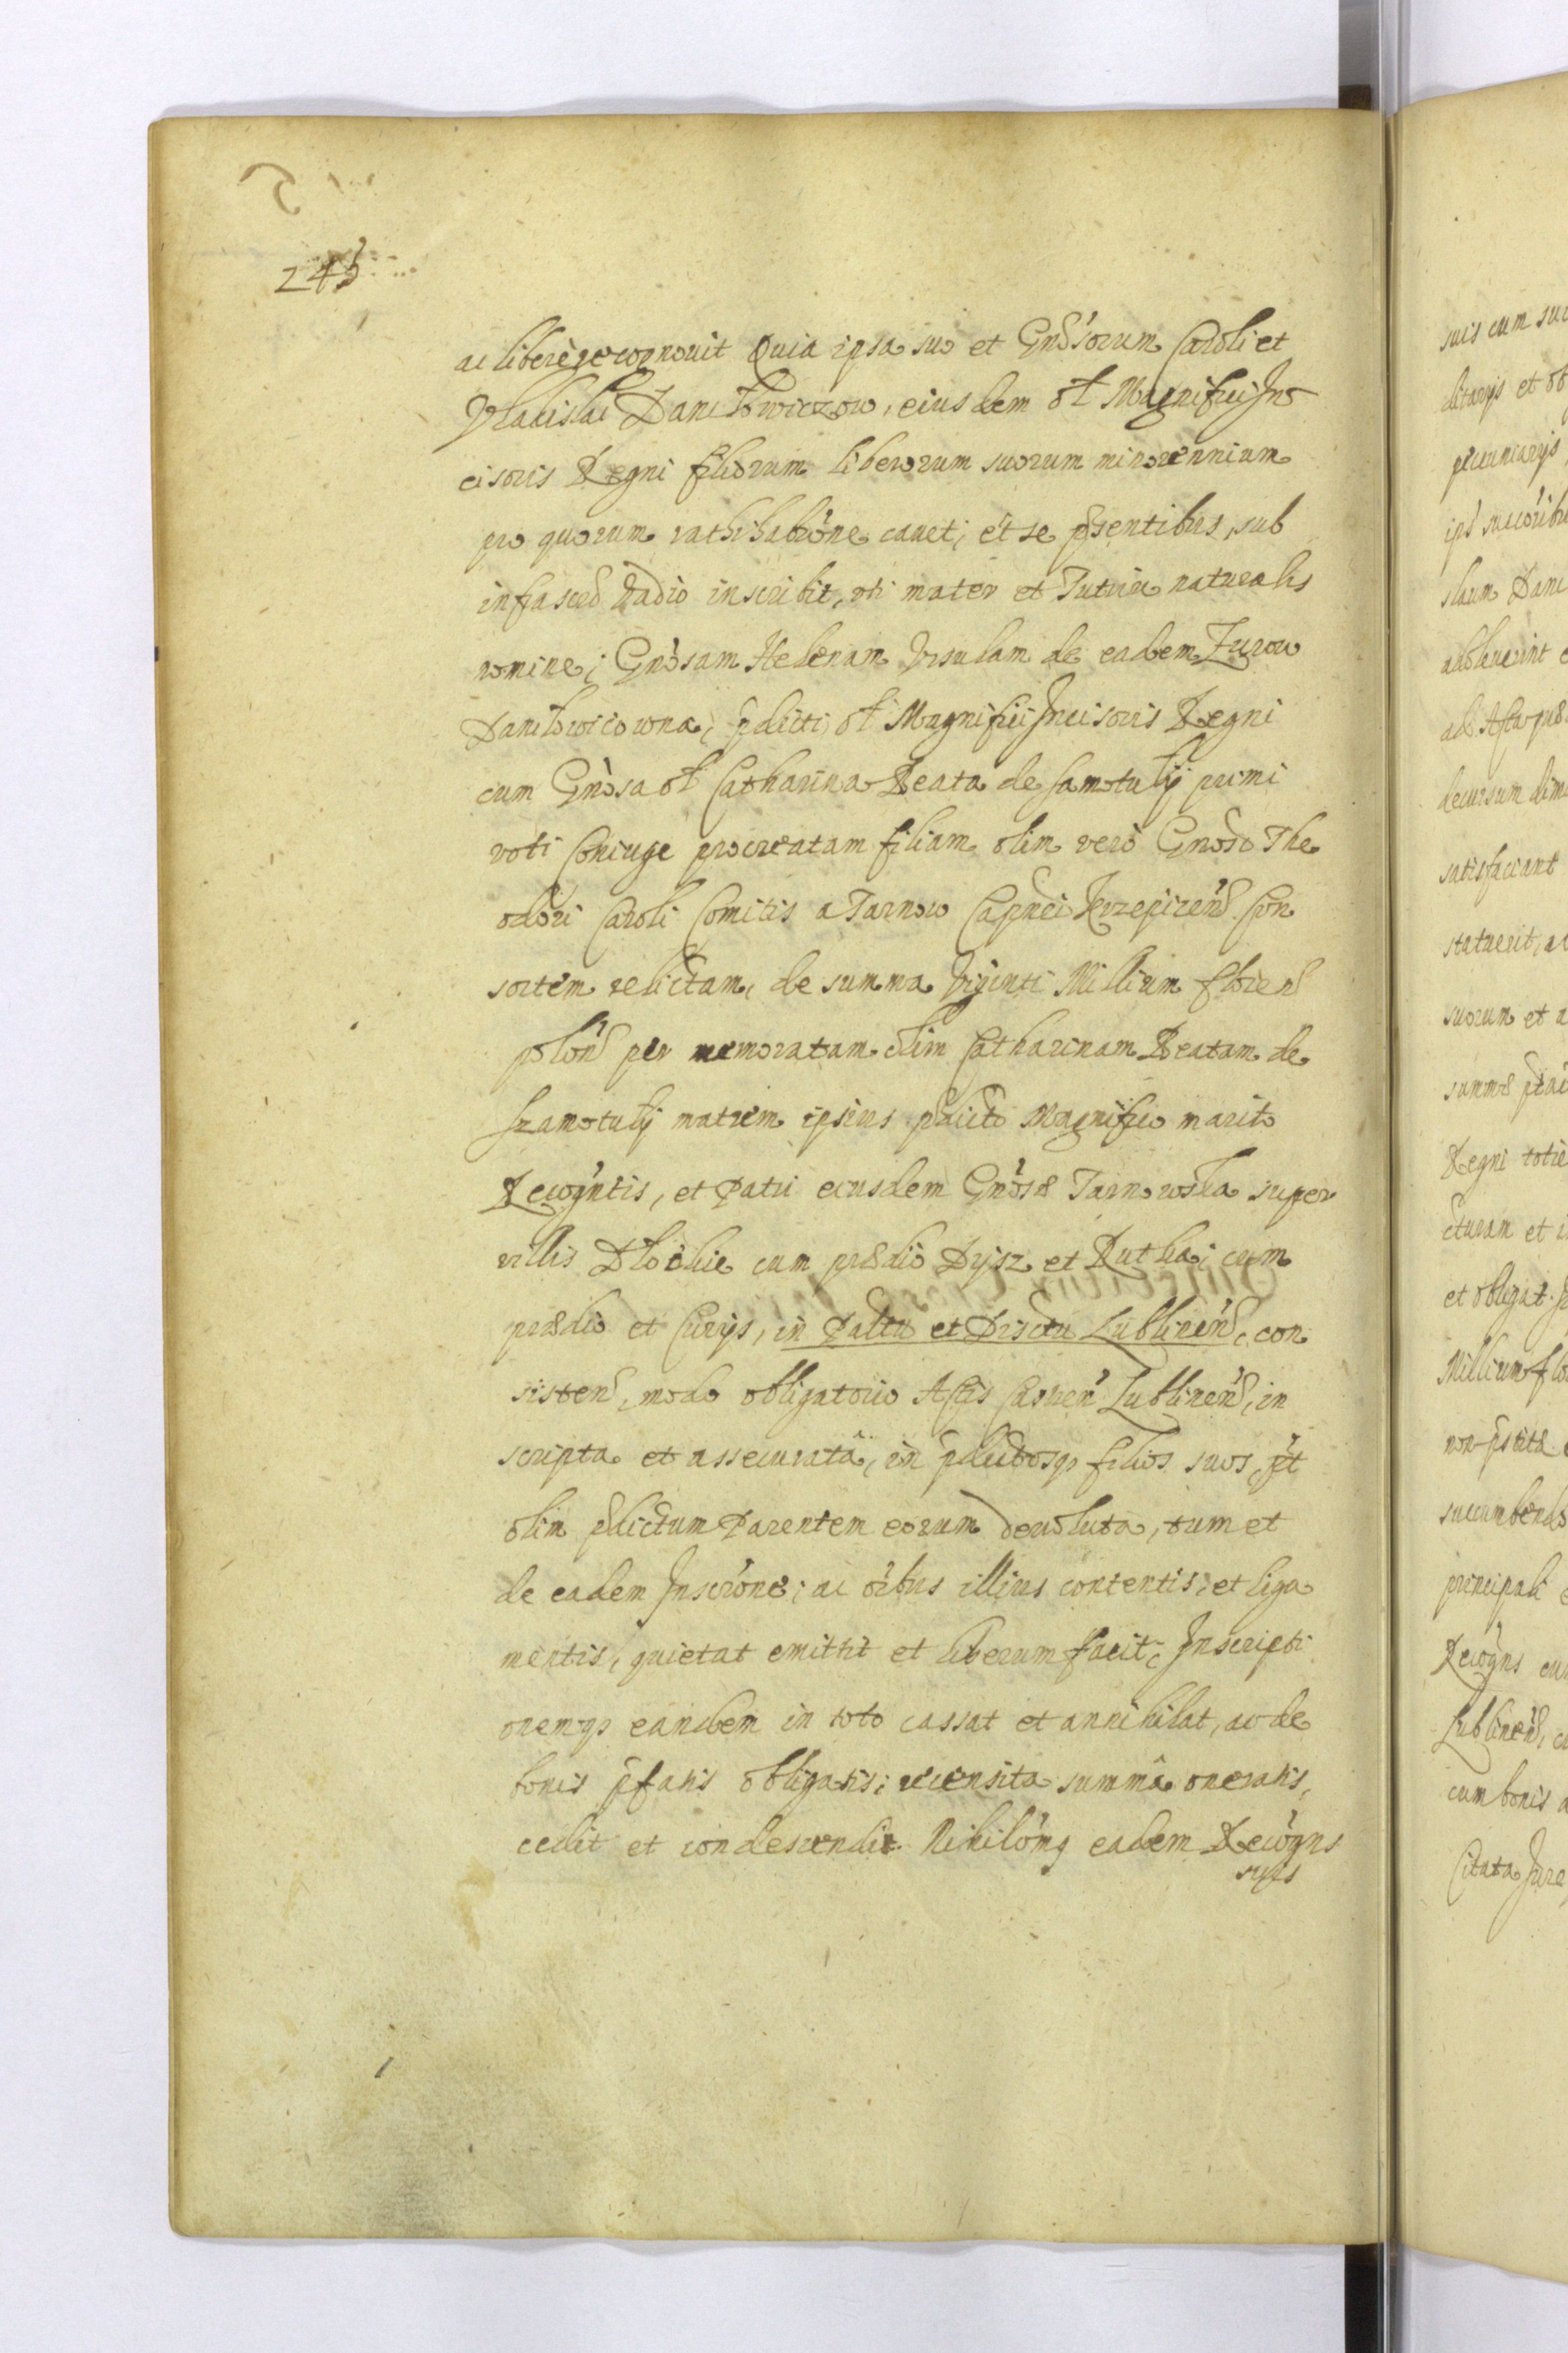 245
ac liberè recognouit Quia ipsa suo et Gnōsorum Caroli et
Vladislai Daniłowiczow, eiusdem ol Magnifici In
cisoris Regni filiorum liberorum suorum minorennium
pro quorum rathihabōne cauet, et se psentibus, sub
infrascr vadio inscribit, uti mater et Tutrix naturalis
nomine, Gnōsam Helenam Vrsulam de eadem Zurow
Daniłowicowna, pdicti ol Magnifici Incisoris Regni
cum Gnōsa ol Catharina Beata de Samotuły primi
voti Coniuge procreatam filiam olim verò Gnōso The
odori Caroli Comitis a Tarnow Capnei Krzepicen Con
sortem relictam, de summa Viginti Millium floren
polon per memoratam olim Catharinam Beatam de
Szamotuły matrem ipsius pdicto Magnifico marito
Recogntis, et Patri eiusdem Gnōsæ Tarnowska super
villis Dłockie cum prædio Dysz et Rutka, cum
prædio et Curijs, in Paltu et Districtu Lublinen, con
sisten, modo obligatorio Actis Castren Lublinen, in
scripta et assecurata, in pdictosq filios suos, pt
olim pdictum Parentem eorum deuoluta, tum et
de eadem Inscrōne, ac oībus illius contentis, et liga
mentis, quietat emittit et liberum facit, Inscripti
onemq eandem in toto cassat et annihilat, ac de
bonis pfatis obligatis, recensita summâ oneratis,
cedit et condescendit. Nihilōmq eadem Recogns
suis cum suc
ditarijs et ob
pecuniarijs
ips succōribu
slaum Dani
ad Acta
decursum
satisfaciant
statuerit, ac
suorum et a
summæ
Regni totie
cturam et i
et obligat.
Millium flo
non pstita
succumbendo
principali
Recogns cum
Lublinen, c
cum bonis a
Citata Jure